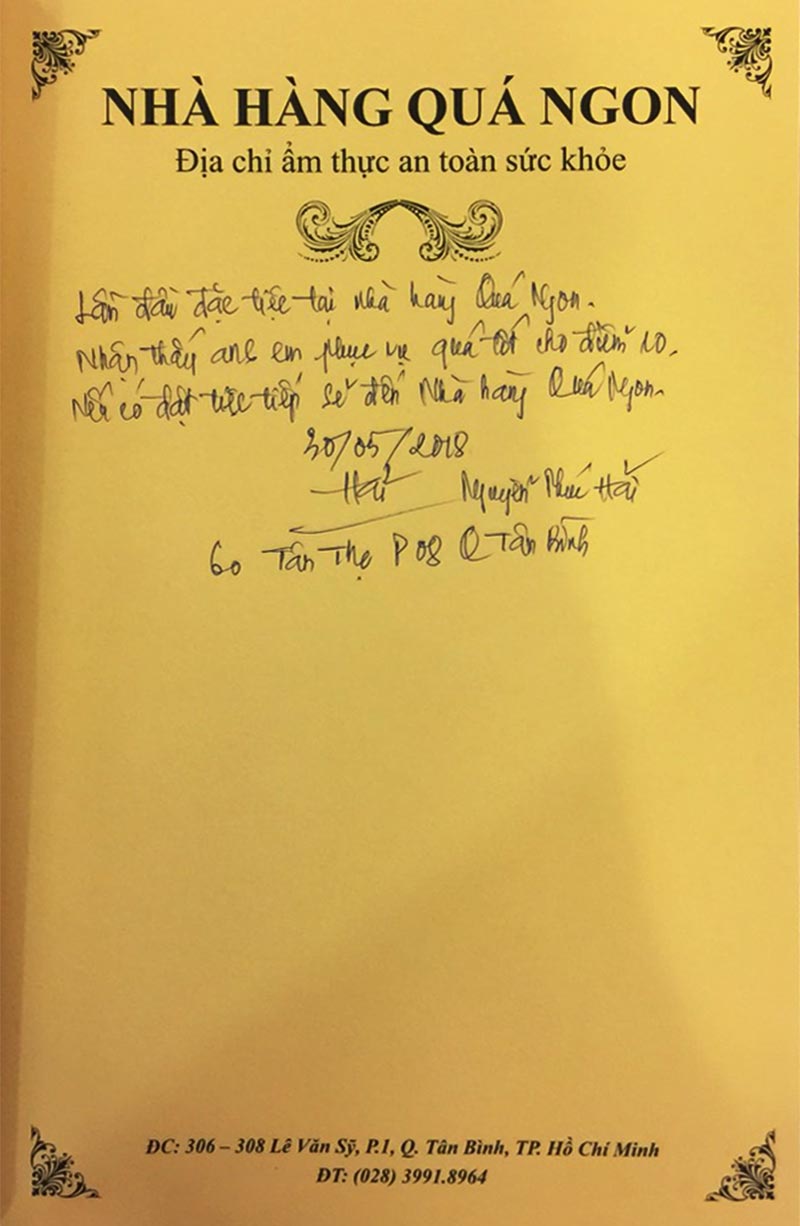 NHÀ HÀNG QUÁ NGON
Địa chỉ ẩm thực an toàn sức khỏe
Lần đầu đặc tiệc tại nhà hàng Quá Ngon.
Nhận thấy anh em phục vụ quá tốt cho điểm 10.
Nếu có đặt tiệc tiếp sẽ đến Nhà hàng Quá Ngon.
30/05/2018
Hải Nguyễn Hải
60 Tân Thọ P 08 Q Tân Bình
ĐC: 306 – 308 Lê Văn Sỹ, P.1, Q. Tân Bình, TP. Hồ Chí Minh
ĐT: (028) 3991.8964